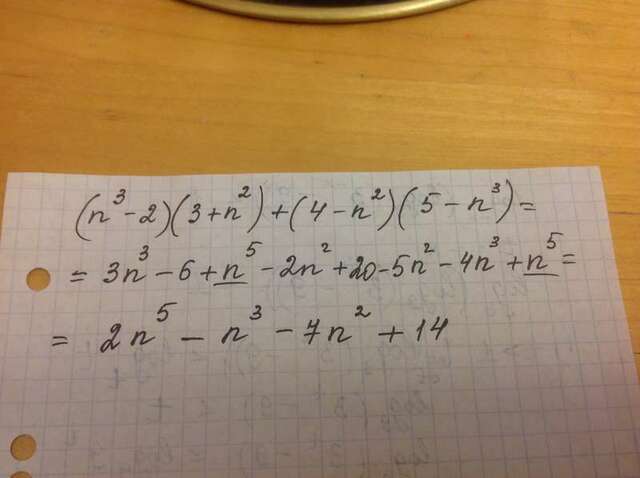 (n³-2)(3+n²)+(4-n²)(5-n³)=
=3n³-6+n⁵-2n²+20-5n²-4n³+n⁵=
=2n⁵-n³-7n²+14